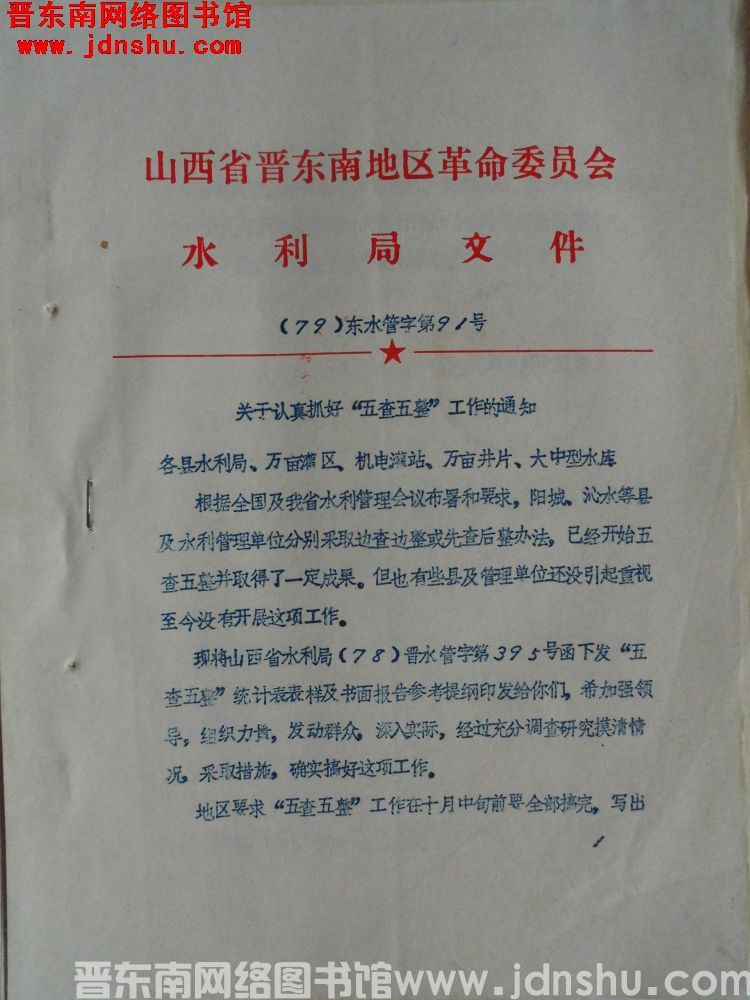 晋东南网络图书馆
www.jdnshu.com
山西省晋东南地区革命委员会
水利局文件
(79)东水管字第91号
关于认真抓好“五查五整”工作的通知
各县水利局、万亩灌区、机电灌站、万亩井片、大中型水库
根据全国及我省水利管理会议布署和要求,阳城、沁水等县
及水利管理单位分别采取边查边整或先查后整办法,已经开始五
查五整并取得了一定成果。但也有些县及管理单位还没引起重视
至今没有开展这项工作。
现将山西省水利局(78)晋水管字第395号函下发“五
查五整”统计表表样及书面报告参考提纲印发给你们,希加强领
导,组织力量,发动群众,深入实际,经过充分调查研究摸清情
况,采取措施,确实搞好这项工作。
地区要求“五查五整”工作在十月中旬前要全部搞完,写出
1
晋东南网络图书馆www.jdnshu.com